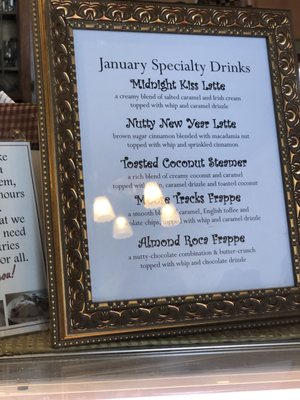 January Specialty Drinks
Midnight Kiss Latte
a creamy blend of salted caramel and Irish cream
topped with whip and caramel drizzle
Nutty New Year Latte
brown sugar cinnamon blended with macadamia nut
topped with whip and sprinkled cinnamon
Toasted Coconut Steamer
a rich blend of creamy coconut and caramel
topped with caramel drizzle and toasted coconut
Moose Tracks Frappe
a smooth caramel, English toffee and
chips, topped with whip and caramel drizzle
Almond Roca Frappe
a nutty-chocolate combination & butter-crunch
topped with whip and chocolate drizzle
a
em,
hours
at we
need
for all.